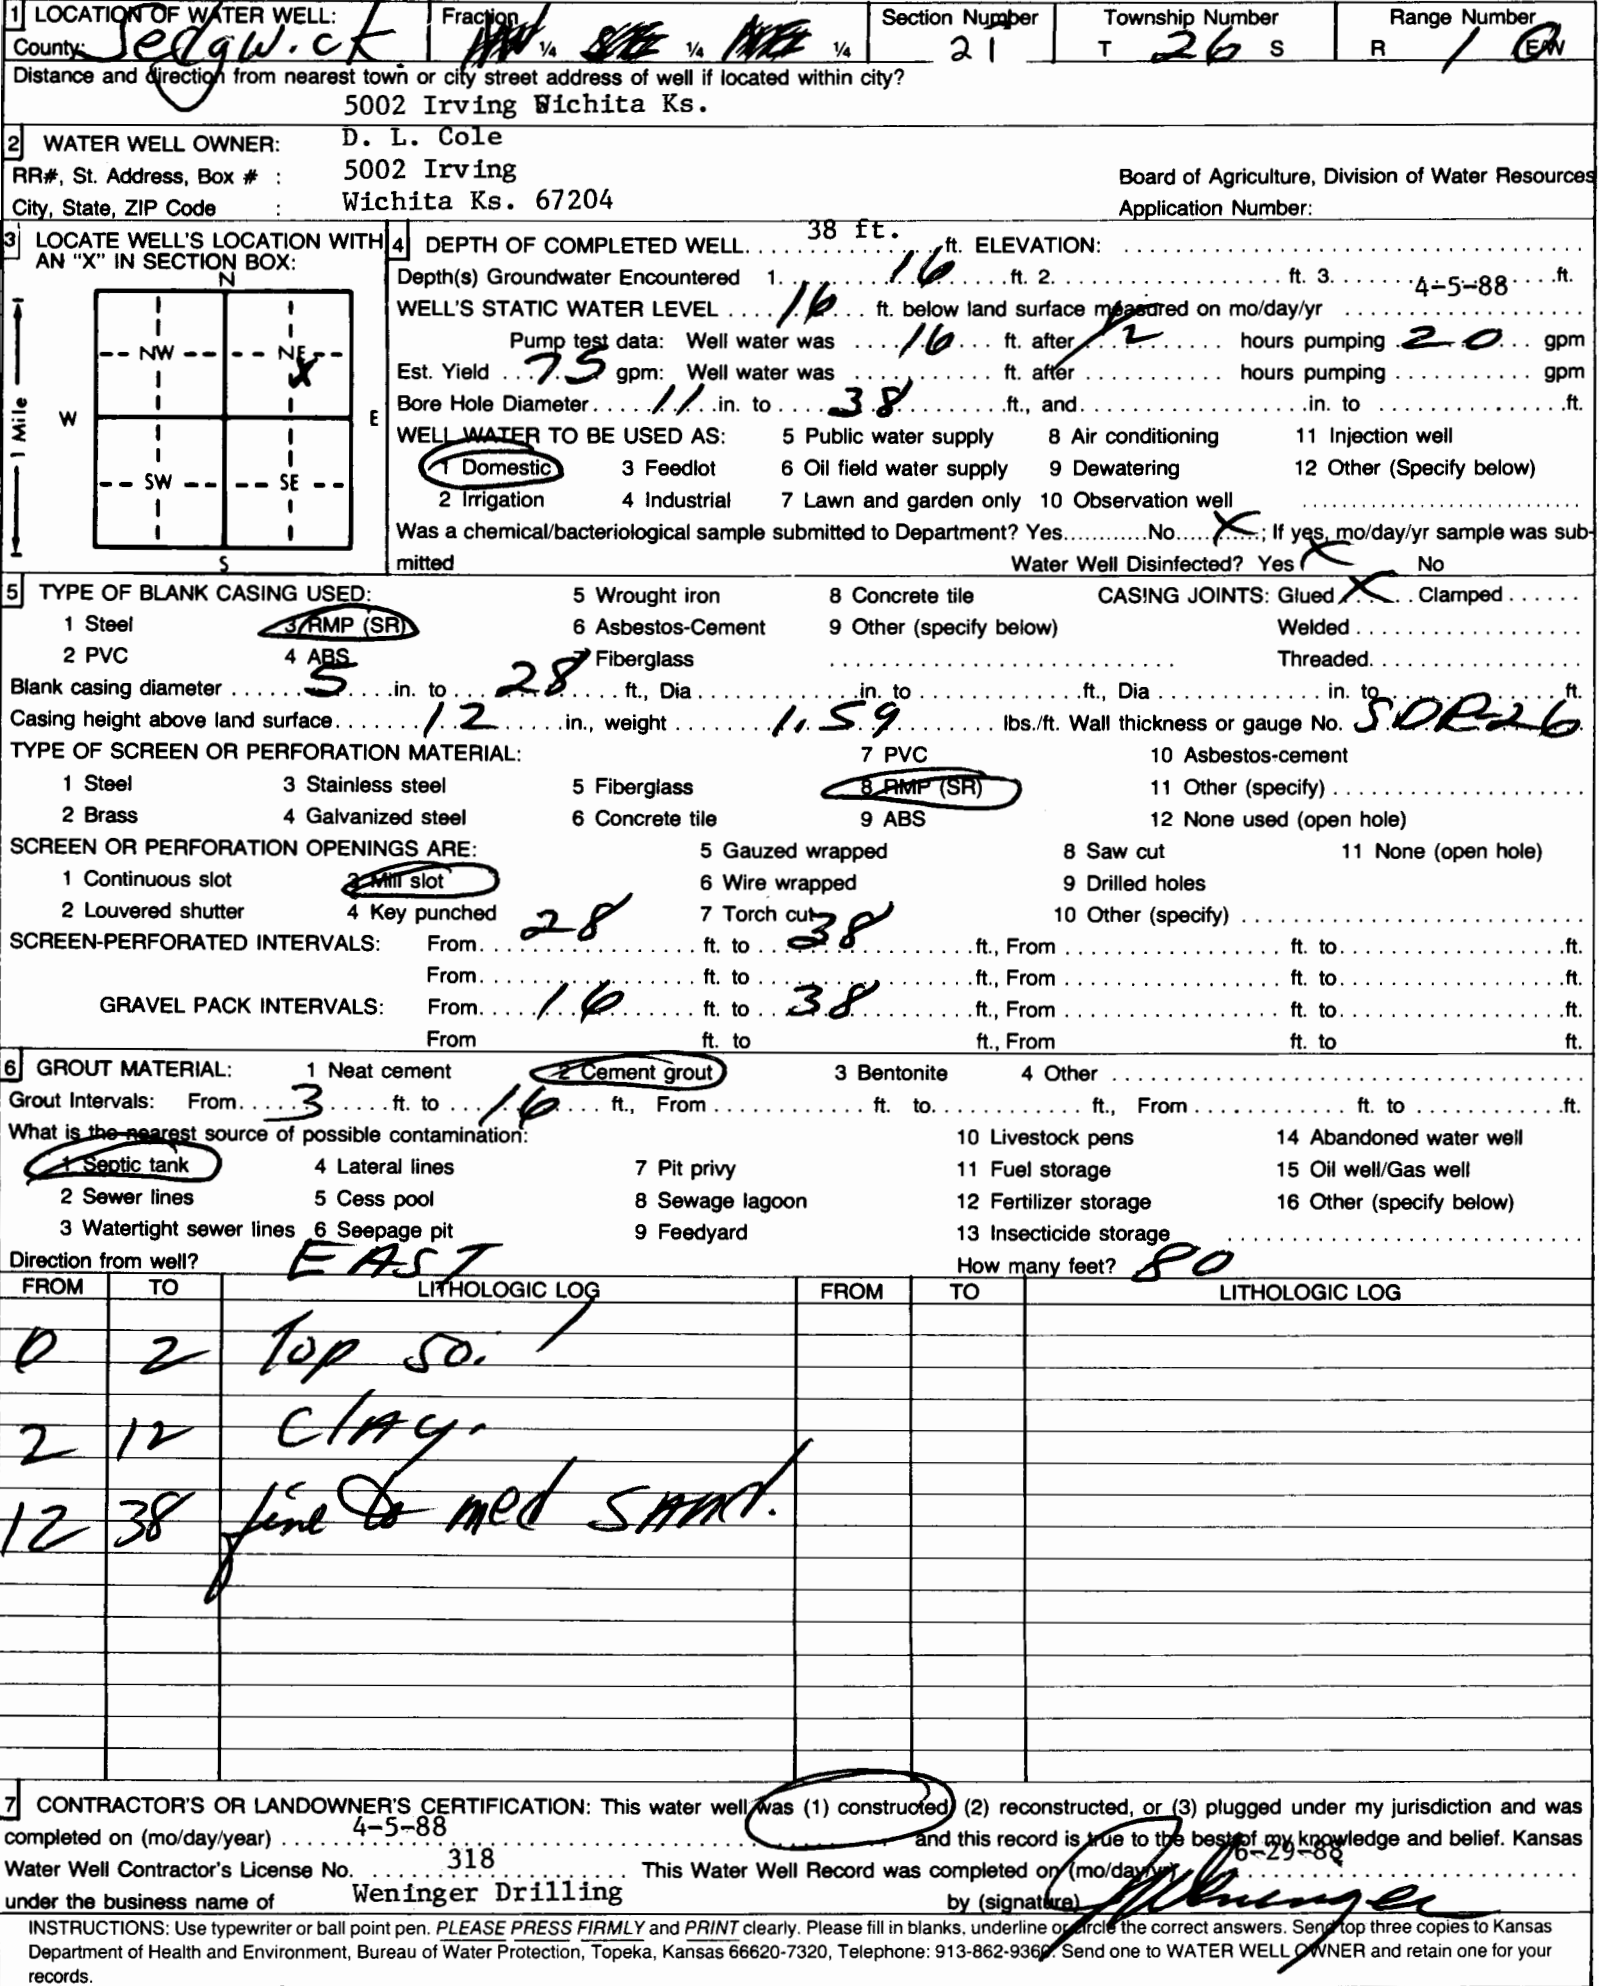 1 LOCATION OF WATER WELL: Fraction Section Number Township Number Range Number
County: Sedgwick ¼ ¼ ¼ 21 T 26 S R 1 E/W
Distance and direction from nearest town or city street address of well if located within city?
5002 Irving Wichita Ks.
2 WATER WELL OWNER: D. L. Cole
RR#, St. Address, Box # : 5002 Irving Board of Agriculture, Division of Water Resources
City, State, ZIP Code : Wichita Ks. 67204 Application Number:
3 LOCATE WELL'S LOCATION WITH AN "X" IN SECTION BOX:
N
NW NE
X
W E
SW SE
S
1 Mile
4 DEPTH OF COMPLETED WELL 38 ft. ft. ELEVATION:
Depth(s) Groundwater Encountered 1. 16 ft. 2. ft. 3. ft.
WELL'S STATIC WATER LEVEL 16 ft. below land surface measured on mo/day/yr 4-5-88
Pump test data: Well water was 16 ft. after 1/2 hours pumping 20 gpm
Est. Yield 75 gpm: Well water was ft. after hours pumping gpm
Bore Hole Diameter 11 in. to 38 ft., and in. to ft.
WELL WATER TO BE USED AS: 5 Public water supply 8 Air conditioning 11 Injection well
1 Domestic 3 Feedlot 6 Oil field water supply 9 Dewatering 12 Other (Specify below)
2 Irrigation 4 Industrial 7 Lawn and garden only 10 Observation well
Was a chemical/bacteriological sample submitted to Department? Yes No X; If yes, mo/day/yr sample was sub-
mitted Water Well Disinfected? Yes X No
5 TYPE OF BLANK CASING USED: 5 Wrought iron 8 Concrete tile CASING JOINTS: Glued X Clamped
1 Steel 3 RMP (SR) 6 Asbestos-Cement 9 Other (specify below) Welded
2 PVC 4 ABS 7 Fiberglass Threaded
Blank casing diameter 5 in. to 28 ft., Dia in. to ft., Dia in. to ft.
Casing height above land surface 12 in., weight 1.59 lbs./ft. Wall thickness or gauge No. SDR-26
TYPE OF SCREEN OR PERFORATION MATERIAL: 7 PVC 10 Asbestos-cement
1 Steel 3 Stainless steel 5 Fiberglass 8 RMP (SR) 11 Other (specify)
2 Brass 4 Galvanized steel 6 Concrete tile 9 ABS 12 None used (open hole)
SCREEN OR PERFORATION OPENINGS ARE: 5 Gauzed wrapped 8 Saw cut 11 None (open hole)
1 Continuous slot 3 Mill slot 6 Wire wrapped 9 Drilled holes
2 Louvered shutter 4 Key punched 7 Torch cut 10 Other (specify)
SCREEN-PERFORATED INTERVALS: From 28 ft. to 38 ft., From ft. to ft.
From ft. to ft., From ft. to ft.
GRAVEL PACK INTERVALS: From 16 ft. to 38 ft., From ft. to ft.
From ft. to ft., From ft. to ft.
6 GROUT MATERIAL: 1 Neat cement 2 Cement grout 3 Bentonite 4 Other
Grout Intervals: From 3 ft. to 16 ft., From ft. to ft., From ft. to ft.
What is the nearest source of possible contamination: 10 Livestock pens 14 Abandoned water well
1 Septic tank 4 Lateral lines 7 Pit privy 11 Fuel storage 15 Oil well/Gas well
2 Sewer lines 5 Cess pool 8 Sewage lagoon 12 Fertilizer storage 16 Other (specify below)
3 Watertight sewer lines 6 Seepage pit 9 Feedyard 13 Insecticide storage
Direction from well? EAST How many feet? 80
FROM TO LITHOLOGIC LOG FROM TO LITHOLOGIC LOG
0 2 Top soil
2 12 Clay.
12 38 fine to med sand.
7 CONTRACTOR'S OR LANDOWNER'S CERTIFICATION: This water well was (1) constructed, (2) reconstructed, or (3) plugged under my jurisdiction and was
completed on (mo/day/year) 4-5-88 and this record is true to the best of my knowledge and belief. Kansas
Water Well Contractor's License No. 318 This Water Well Record was completed on (mo/day/yr) 6-29-88
under the business name of Weninger Drilling by (signature)
INSTRUCTIONS: Use typewriter or ball point pen. PLEASE PRESS FIRMLY and PRINT clearly. Please fill in blanks, underline or circle the correct answers. Send top three copies to Kansas
Department of Health and Environment, Bureau of Water Protection, Topeka, Kansas 66620-7320, Telephone: 913-862-9360. Send one to WATER WELL OWNER and retain one for your
records.